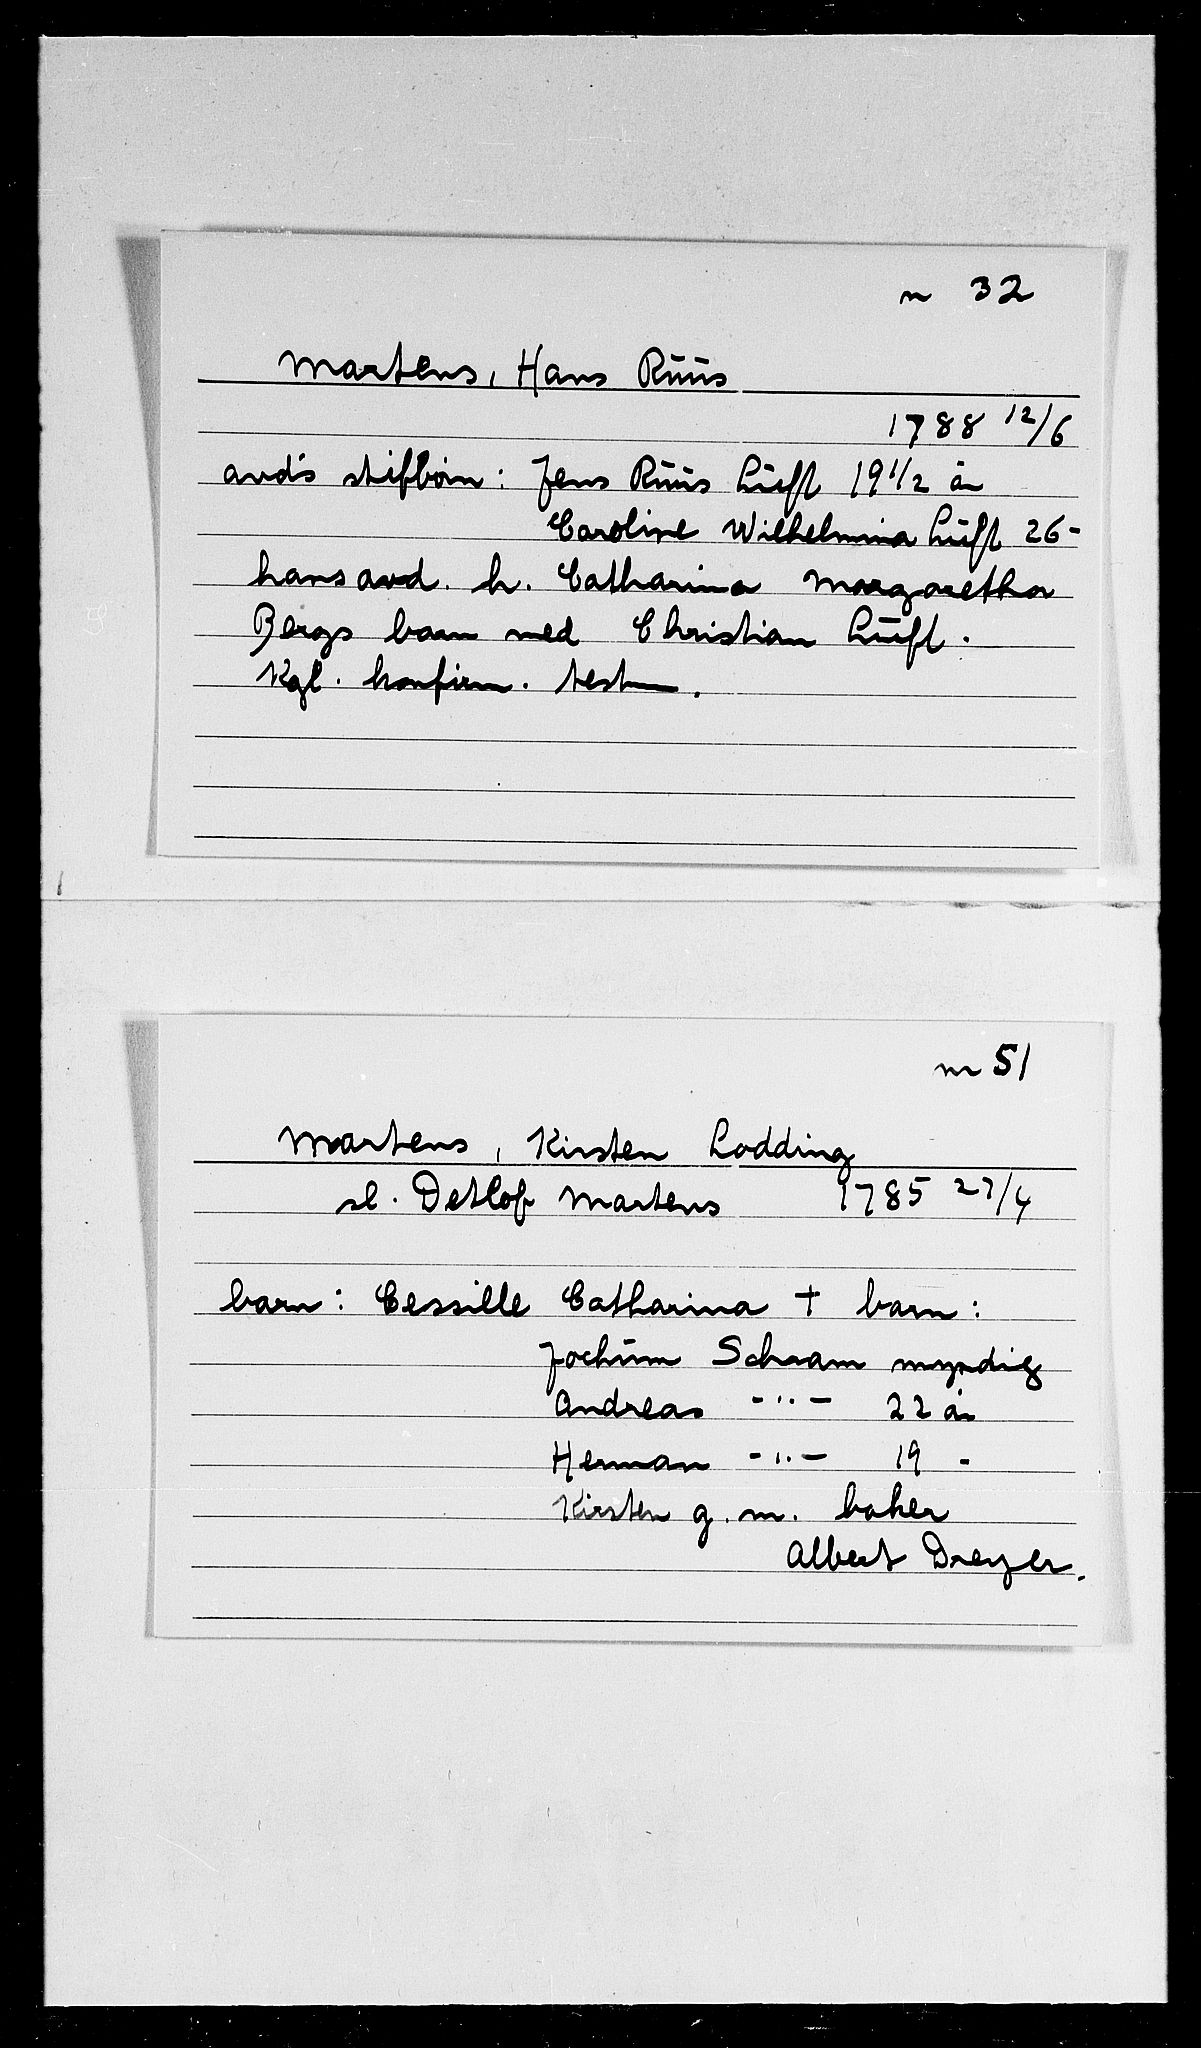 m 32
Martens, Hans Rüüs
1788 12/6
avd's stifbörn: Jens Rüüs Lüft 19 1/2 år
Caroline Wilhelmina Lüft 26 -
hans avd. h. Catharina Margaretha
Bergs barn med Christian Lüft.
Kgl. konfirm. test.
m 51
Martens, Kirsten Lodding
sl. Detlof Martens 1785 27/4
barn: Cessille Catharina † barn:
Jochüm Schram myndig
Andreas -"- 22 år
Herman -"- 19 -
Kirsten g. m. baker
Albert Dreyer.